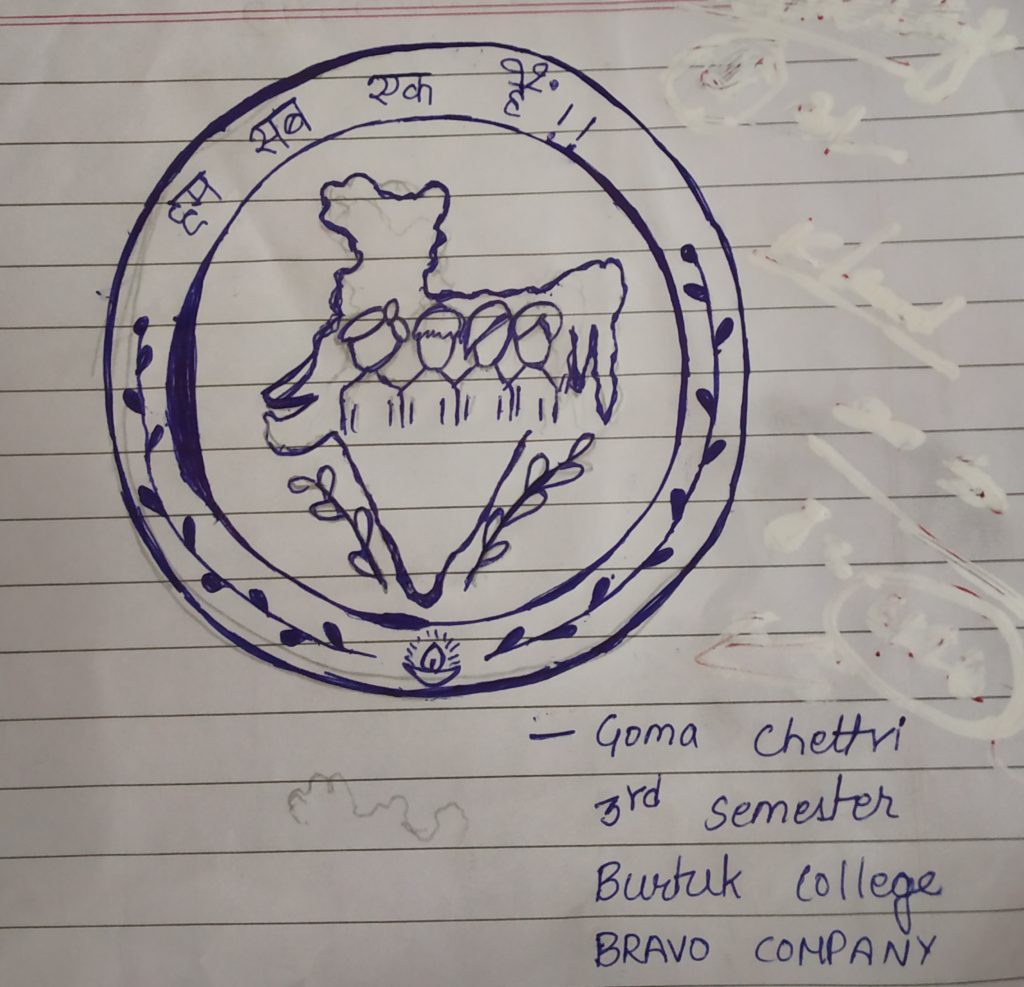 हम सब एक हैं !!
— Goma Chettri
3rd semester
Burtuk College
BRAVO COMPANY